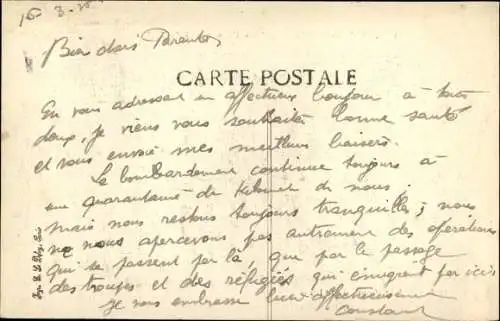 Bien chers Parents
CARTE POSTALE
En vous adressant un affectueux bonjour à tous
deux, je viens vous souhaiter bonne santé
et vous envoie mes meilleurs baisers.
Le bombardement continue toujours à
une quarantaine de kilomet de nous ;
mais nous restons toujours tranquilles ; nous
ne nous apercevons pas autrement des opérations
qui se passent par là, que par le passage
des troupes et des réfugiés qui émigrent par ici
Je vous embrasse bien affectueusement
Constant